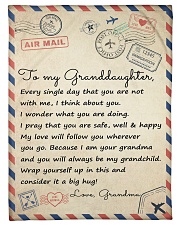 AIR MAIL
To my Granddaughter,
Every single day that you are not
with me, I think about you.
I wonder what you are doing.
I pray that you are safe, well & happy
My love will follow you wherever
you go. Because I am your grandma
and you will always be my grandchild.
Wrap yourself up in this and
consider it a big hug!
Love, Grandma